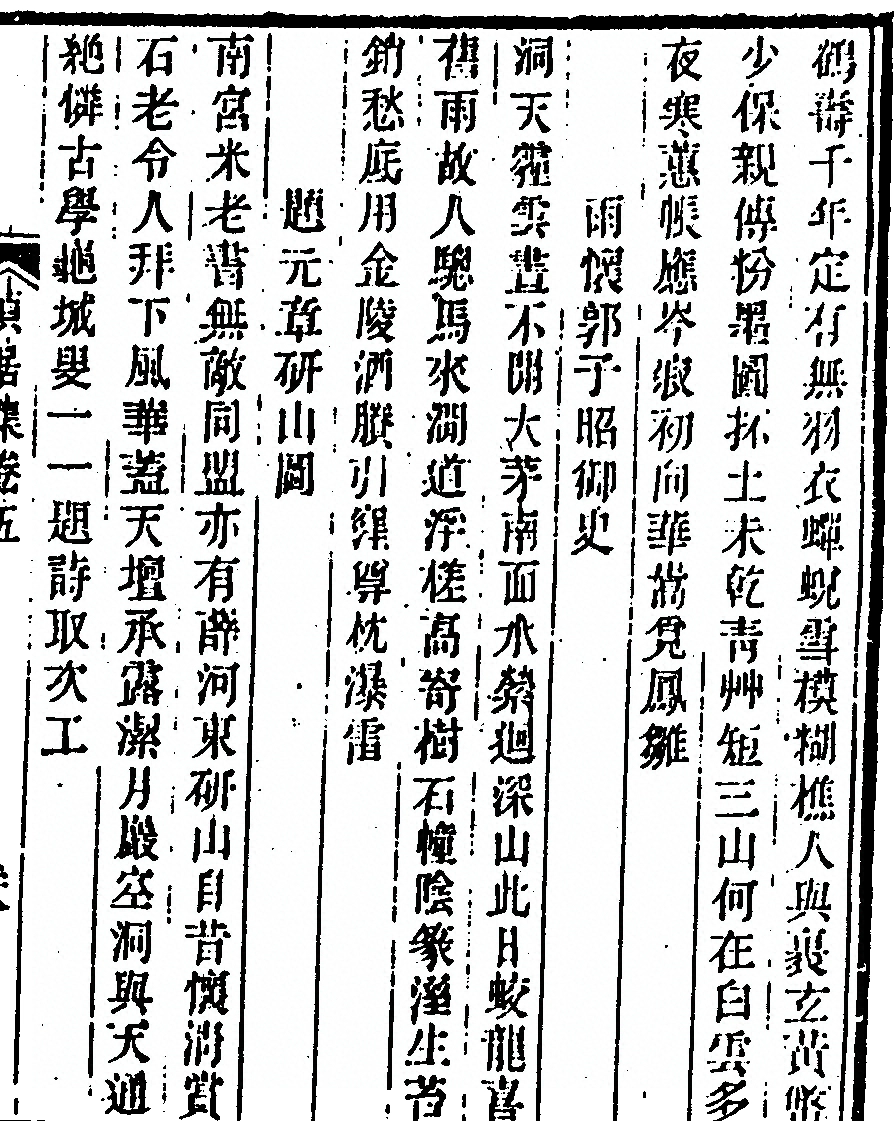 鶴壽千年定有無羽衣蟬蛻雪模糊樵人與裹玄黃幣
少保親傳粉墨圖抔土未乾青艸短三山何在白雲多
夜寒蕙帳應岑寂初向華陽覓鳳雛
雨懷郭子昭御史
洞天霾雲晝不開大茅南面水縈迴深山此日蛟龍喜
舊雨故人驄馬來澗道浮槎高寄樹石幢陰篆溼生苔
銷愁底用金陵酒臏引窪尊枕瀑雷
題元章研山圖
南宮米老書無敵同盟亦有薛河東研山自昔懷淸賞
石老令人拜下風華蓋天壇承露潔月巖空洞與天通
絶憐古學龜城叟一一題詩取次工
貞居集卷五